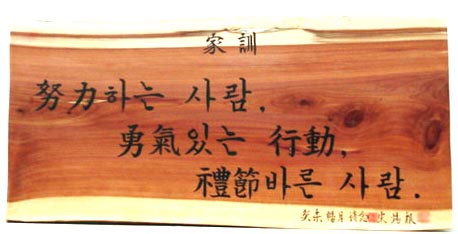 家訓
努力하는 사람,
勇氣있는 行動,
禮節바른 사람.